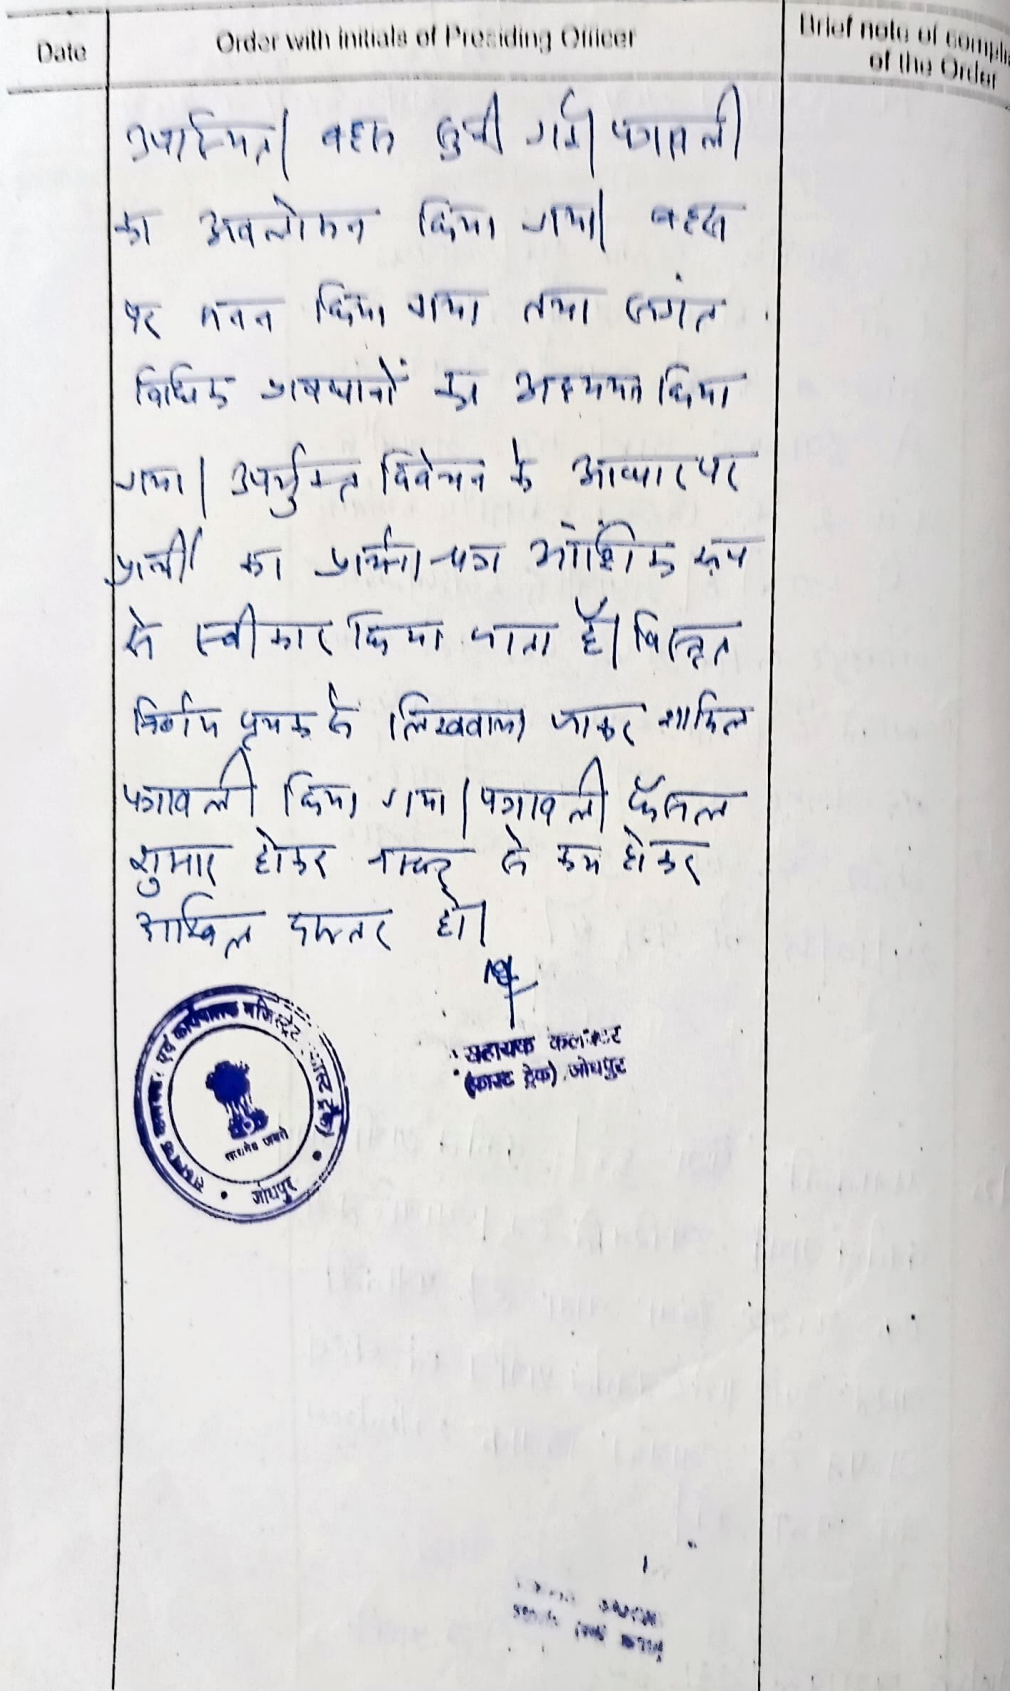 Date
Order with initials of Presiding Officer
Brief note of compli
of the Order
उपस्थित। बहस सुनी गई। पत्रावली
का अवलोकन किया गया। बहस
पर मनन किया गया तथा संगत
विधिक प्रावधानों का अध्ययन किया
गया। उपर्युक्त विवेचन के आधार पर
प्रार्थी का प्रार्थना-पत्र आंशिक रूप
से स्वीकार किया जाता है। विस्तृत
निर्णय पृथक से लिखवाया जाकर शामिल
पत्रावली किया गया। पत्रावली फैसल
शुमार होकर नम्बर से कम होकर
दाखिल दफ्तर हो।
सहायक कलक्टर
(फास्ट ट्रेक) जोधपुर
सहायक कलक्टर एवं कार्यपालक मजिस्ट्रेट (फास्ट ट्रेक) जोधपुर
सत्यमेव जयते